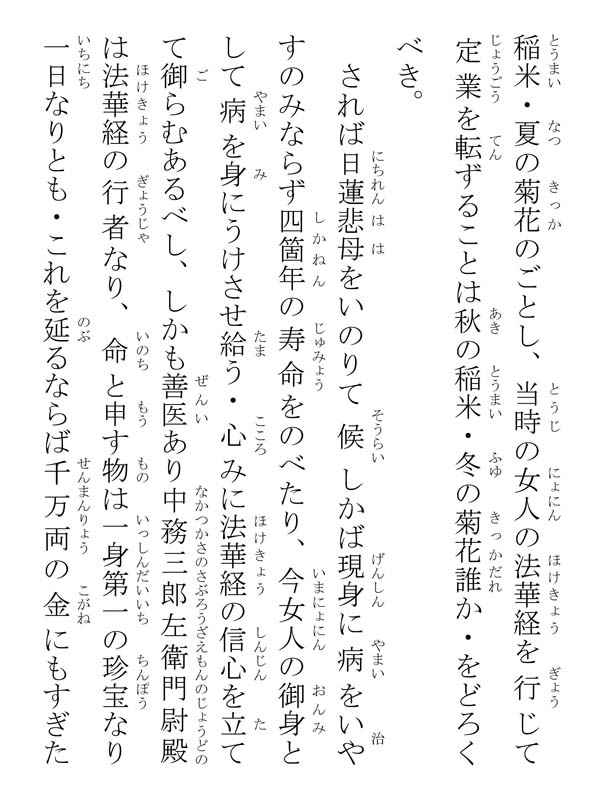 稲米・夏の菊花のごとし、当時の女人の法華経を行じて
定業を転ずることは秋の稲米・冬の菊花誰か・をどろく
べき。
されば日蓮悲母をいのりて候しかば現身に病をいや
すのみならず四箇年の寿命をのべたり、今女人の御身と
して病を身にうけさせ給う・心みに法華経の信心を立て
て御らむあるべし、しかも善医あり中務三郎左衛門尉殿
は法華経の行者なり、命と申す物は一身第一の珍宝なり
一日なりとも・これを延るならば千万両の金にもすぎた